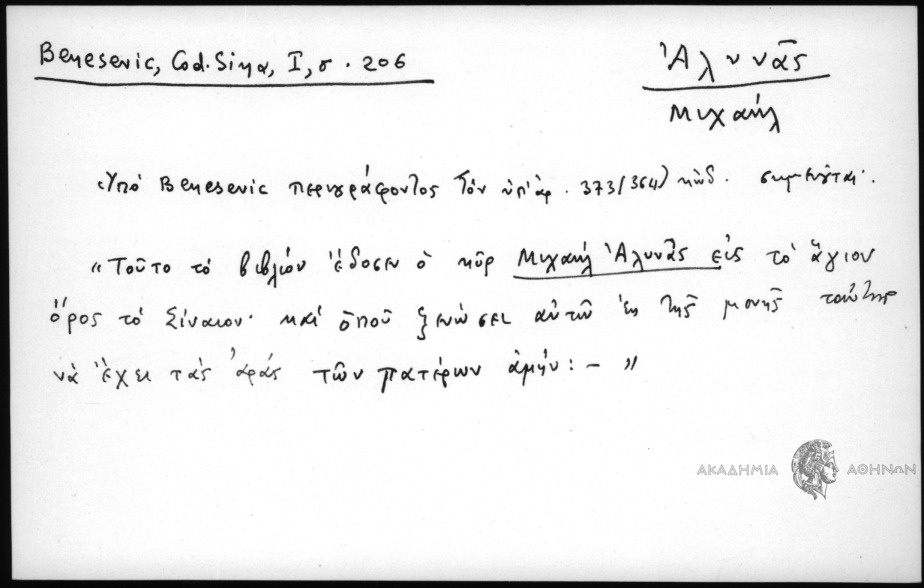 Benesevic, Cod. Sina, I, σ. 206
Ἀλυνᾶς
Μιχαήλ
Ὑπό Benesevic περιγράφοντος τόν ὑπ' ἀρ. 373 (364) κώδ. σημειοῦται.
"Τοῦτο τό βιβλίον ἔδοσεν ὁ κῦρ Μιχαήλ Ἀλυνᾶς εἰς τὸ ἅγιον
ὄρος τό Σίναιον· καί ὁποῦ ξενώσει αὐτῶ ἐκ τῆς μονῆς ταύτης
νὰ ἔχει τάς ἀράς τῶν πατέρων ἀμήν: – "
ΑΚΑΔΗΜΙΑ ΑΘΗΝΩΝ